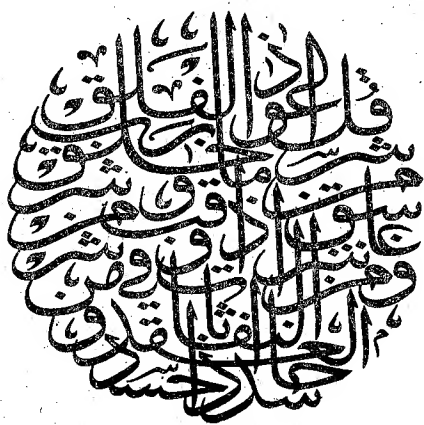 قل اعوذ برب الفلق
من شر ما خلق و من شر
غاسق اذا وقب و من شر
النفاثات في العقد و من شر
حاسد اذا حسد